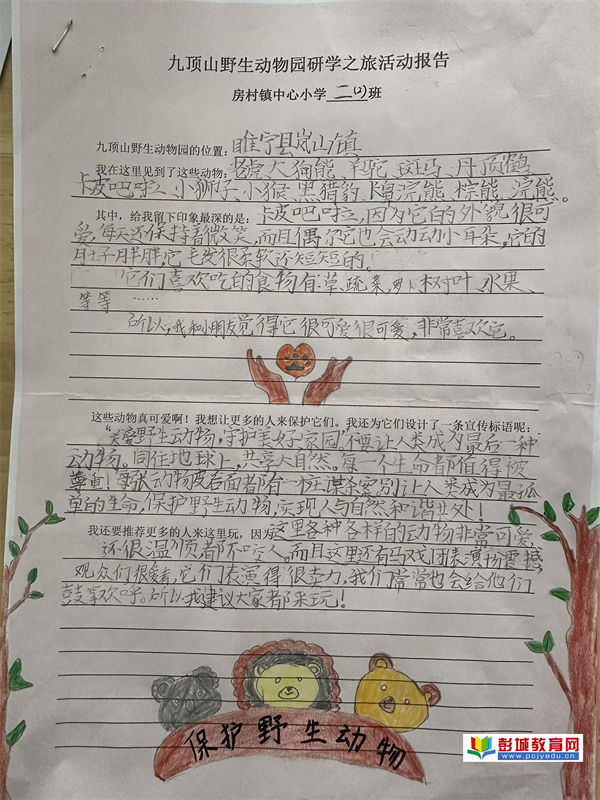 九顶山野生动物园研学之旅活动报告
房村镇中心小学 二(2) 班
九顶山野生动物园的位置：睢宁县岚山镇
我在这里见到了这些动物：老虎、大狗熊、羊驼、斑马、丹顶鹤、
卡皮吧啦、小狮子、小猴、黑猎豹、浣熊、棕熊、浣熊。
其中，给我留下印象最深的是：卡皮吧啦，因为它的外貌很可
爱，每天还保持着微笑，而且偶尔它也会动动小耳朵，它的
肚子胖胖，它毛发很柔软还短短的！
它们喜欢吃的食物有：草、蔬菜、萝卜、树叶、水果、
等等……
所以，我和朋友觉得它很可爱很可爱，非常喜欢它。
这些动物真可爱啊！我想让更多的人来保护它们。我还为它们设计了一条宣传标语呢：
“关爱野生动物，守护美好家园”不要让人类成为最后一种
动物。同住地球上，共享大自然。每一个生命都值得被
尊重！每张动物皮后面都有一桩谋杀案，别让人类成为最孤
单的生命，保护野生动物，实现人与自然和谐共处！
我还要推荐更多的人来这里玩，因为这里各种各样的动物非常可爱，
还很温顺都不咬人，而且这里还有马戏团表演场震撼
观众们很爱看，它们表演得很卖力，我们常常也会给他们
鼓掌欢呼。所以我建议大家都来玩！
保护野生动物
彭城教育网
www.pcjyedu.cn